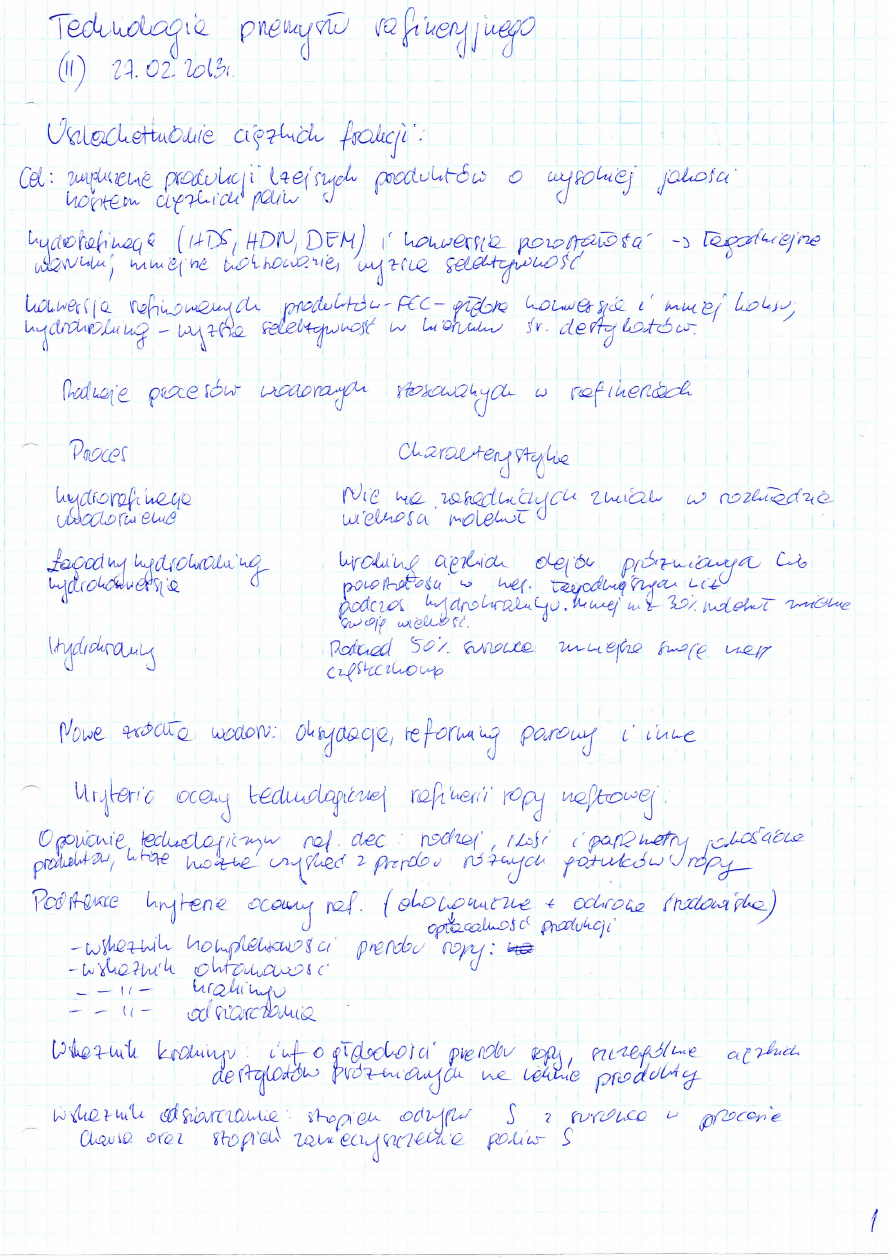 Technologia przemysłu rafineryjnego
(II) 27.02.2013r.
Uszlachetnianie ciężkich frakcji:
Cel: zwiększenie produkcji lżejszych produktów o wysokiej jakości
kosztem ciężkich paliw
hydrorafinacja (HDS, HDN, DEM) i konwersja pozostałości -> łagodniejsze
warunki, mniejsze koksowanie, wyższa selektywność
konwersja rafinowanych produktów - FCC - głębsza konwersja i mniej koksu;
hydrokraking - wyższa selektywność w kierunku śr. destylatów.
Rodzaje procesów wodorowych stosowanych w rafineriach
Proces Charakterystyka
hydrorafinacja Nie ma zasadniczych zmian w rozkładzie
uwodornienie wielkości molekuł
Łagodny hydrokraking kraking ciężkich olejów próżniowych lub
hydrokonwersja pozostałości w war. łagodniejszych niż
podczas hydrokrakingu. Mniej niż 30% molekuł zmienia
swoją wielkość.
Hydrokraking Ponad 50% surowca zmniejsza swoją masę
cząsteczkową
Nowe źródła wodoru: oksydacja, reforming parowy i inne
Kryteria oceny technologicznej rafinerii ropy naftowej.
O poziomie technologicznym raf. dec: rodzaj, ilość i parametry jakościowe
produktów, które można uzyskać z przerobu różnych gatunków ropy
Podstawowe kryteria oceny raf. (ekonomiczne + ochrona środowiska)
opłacalność produkcji
- wskaźnik kompleksowości przerobu ropy:
- wskaźnik oktanowości
- - 11 - krakingu
- - 11 - odsiarczania
Wskaźnik krakingu: inf o głębokości przerobu ropy, szczególnie ciężkich
destylatów próżniowych na lekkie produkty
Wskaźnik odsiarczania: stopień odzysku S z surowca w procesie
Clausa oraz stopień zanieczyszczenia paliw S
1